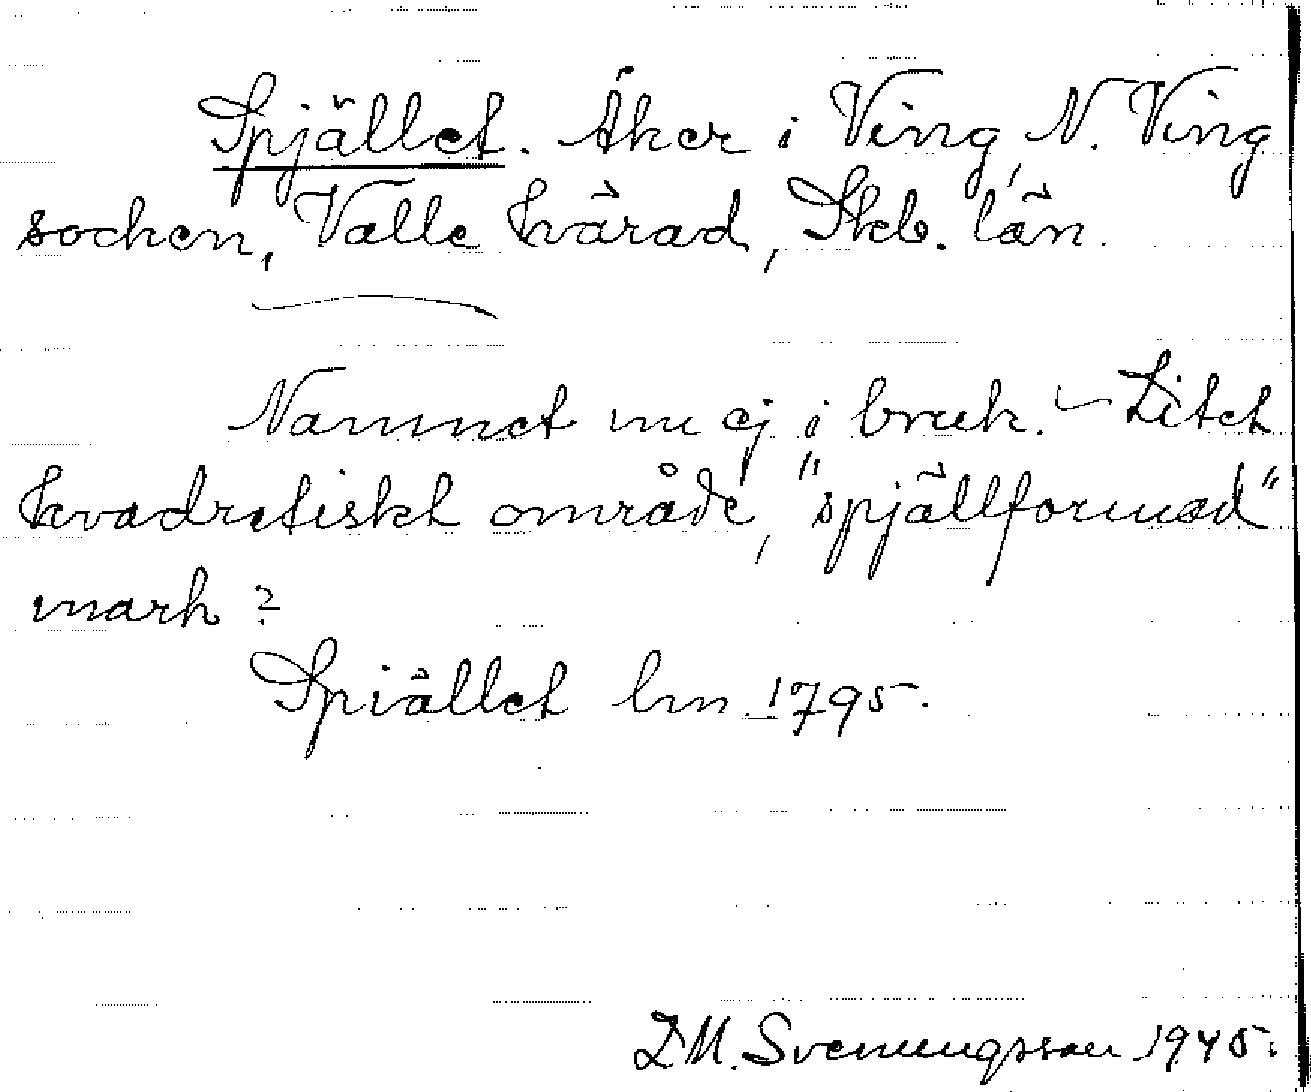 Spjället. Åker i Ving, N. Ving
socken, Valle härad, Skb. län.
Namnet nu ej i bruk. – Litet
kvadratiskt område, "spjällformad"
mark?
Spiället lm 1795.
L M. Svenungsson 1945.